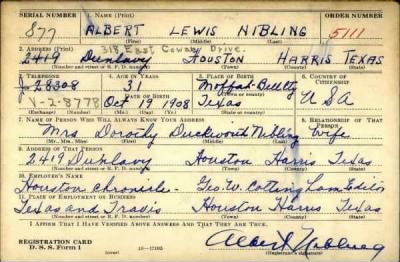 SERIAL NUMBER 1. NAME (Print) ORDER NUMBER
877 ALBERT LEWIS NIBLING 5111
(First) (Middle) (Last)
318 East Cowan Drive.
2. ADDRESS (Print)
2419 Dunlavy HOUSTON HARRIS TEXAS
(Number and street or R. F. D. number) (Town) (County) (State)
3. TELEPHONE 4. AGE IN YEARS 5. PLACE OF BIRTH 6. COUNTRY OF CITIZENSHIP
J-28308 31 Moffat-Bell
DATE OF BIRTH
V-2-8778 Oct 19 1908 Texas USA
(Exchange) (Number) (Mo.) (Day) (Yr.) (State or country)
7. NAME OF PERSON WHO WILL ALWAYS KNOW YOUR ADDRESS 8. RELATIONSHIP OF THAT PERSON
Mrs Dorothy Duckworth Nibling Wife
(Mr., Mrs., Miss) (First) (Middle) (Last)
9. ADDRESS OF THAT PERSON
2419 Dunlavy Houston Harris Texas
(Number and street or R. F. D. number) (Town) (County) (State)
10. EMPLOYER'S NAME
Houston Chronicle - Geo. W. Cottingham Editor
11. PLACE OF EMPLOYMENT OR BUSINESS
Texas and Travis Houston Harris Texas
(Number and street or R. F. D. number) (Town) (County) (State)
I AFFIRM THAT I HAVE VERIFIED ABOVE ANSWERS AND THAT THEY ARE TRUE.
REGISTRATION CARD
D. S. S. Form 1 16-17105 Albert L Nibling
(Registrant's signature)